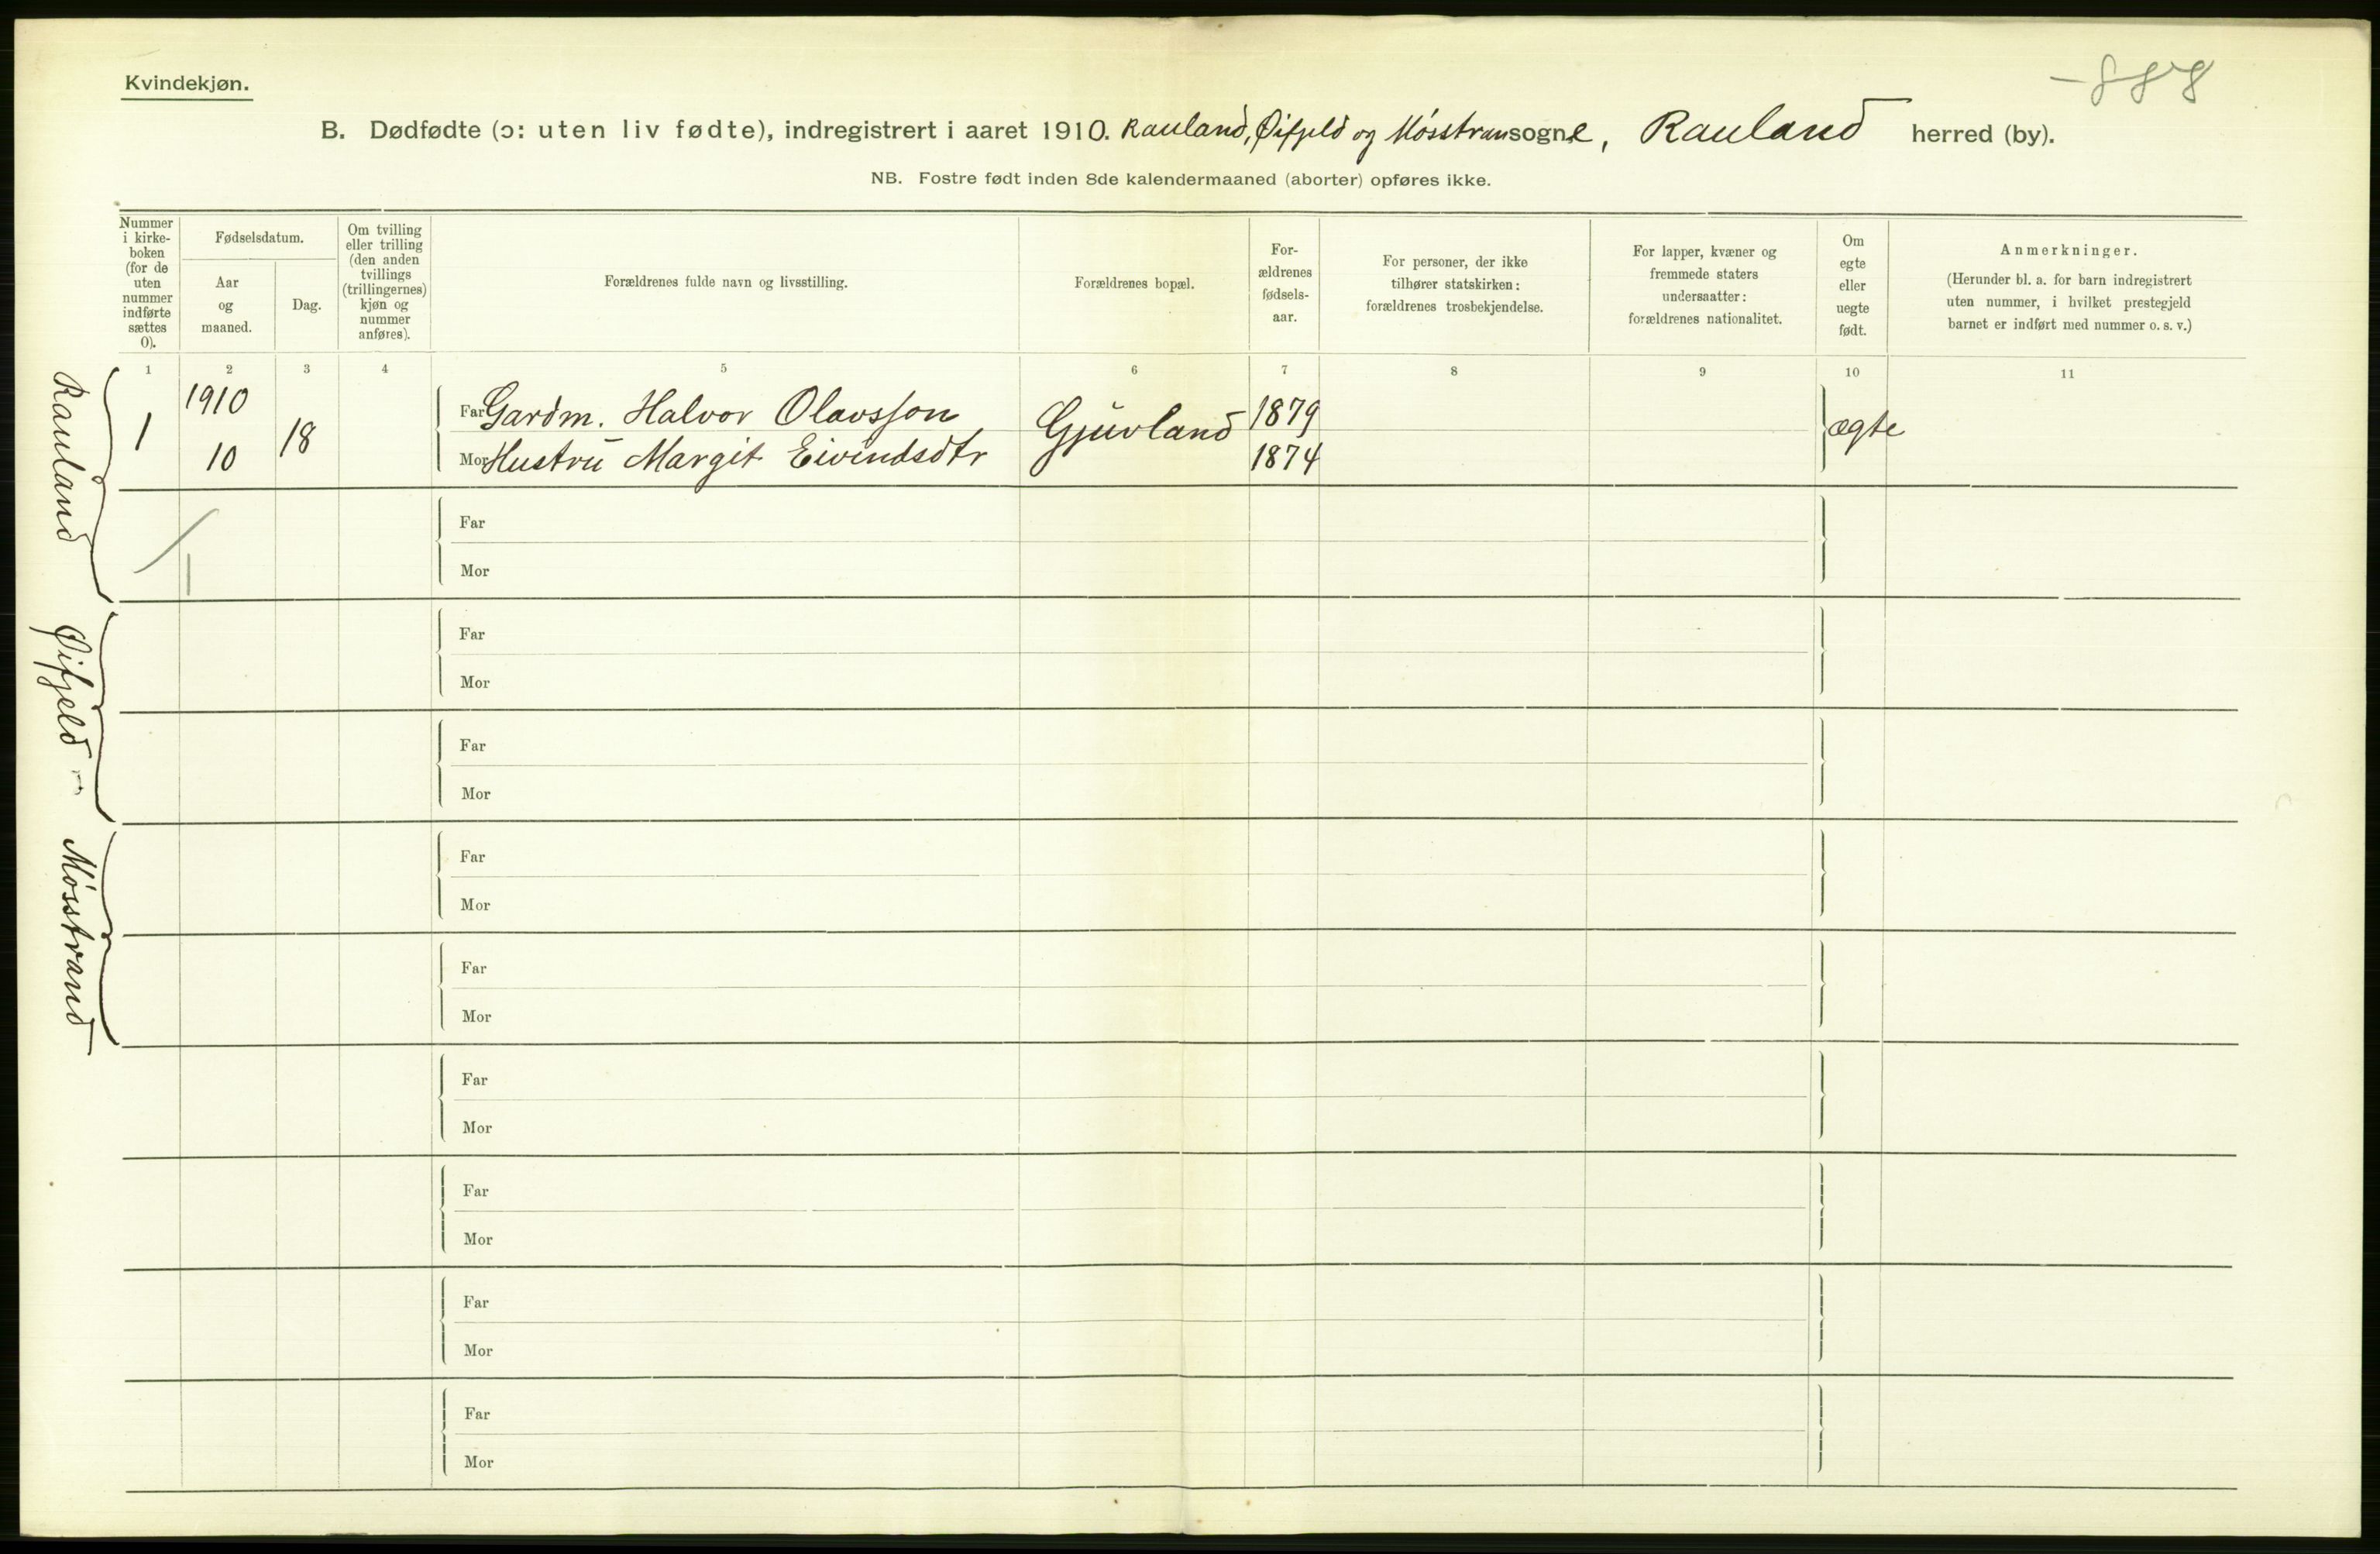 Kvindekjøn.
-888
B. Dødfødte (ɔ: uten liv fødte), indregistrert i aaret 1910. Rauland, Øifjeld og Møsstransogne, Rauland herred (by).
NB. Fostre født inden 8de kalendermaaned (aborter) opføres ikke.
Nummer
i kirke-
boken
(for de
uten
nummer
indførte
sættes
0).
Fødselsdatum.
Aar
og
maaned.
Dag.
Om tvilling
eller trilling
(den anden
tvillings
(trillingernes)
kjøn og
nummer
anføres).
Forældrenes fulde navn og livsstilling.
Forældrenes bopæl.
For-
ældrenes
fødsels-
aar.
For personer, der ikke
tilhører statskirken:
forældrenes trosbekjendelse.
For lapper, kvæner og
fremmede staters
undersaatter:
forældrenes nationalitet.
Om
egte
eller
uegte
født.
Anmerkninger.
(Herunder bl. a. for barn indregistrert
uten nummer, i hvilket prestegjeld
barnet er indført med nummer o. s. v.)
1 2 3 4 5 6 7 8 9 10 11
Rauland
1
1910
10
18
Far Gardm. Halvor Olavsson
Mor Hustru Margit Eivindsdtr
Gjuvland
1879
1874
ægte
Far
Mor
Øifjeld
Far
Mor
Far
Mor
Møsstrand
Far
Mor
Far
Mor
Far
Mor
Far
Mor
Far
Mor
Far
Mor